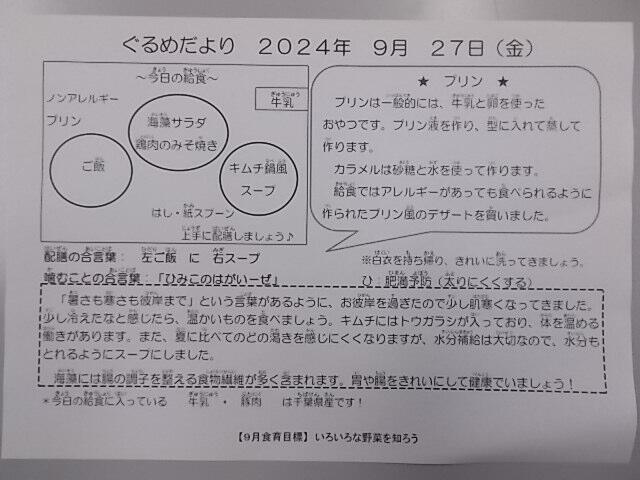 ぐるめだより　２０２４年　９月　２７日（金）
～今日の給食～
ノンアレルギー
プリン
牛乳
海藻サラダ
鶏肉のみそ焼き
ご飯
キムチ鍋風
スープ
はし・紙スプーン
上手に配膳しましょう♪
★　プリン　★
プリンは一般的には、牛乳と卵を使った
おやつです。プリン液を作り、型に入れて蒸して
作ります。
カラメルは砂糖と水を使って作ります。
給食ではアレルギーがあっても食べられるように
作られたプリン風のデザートを買いました。
配膳の合言葉：　左ご飯　に　右スープ
※白衣を持ち帰り、きれいに洗ってきましょう。
噛むことの合言葉：「ひみこのはがいーぜ」
ひ：肥満予防（太りにくくする）
「暑さも寒さも彼岸まで」という言葉があるように、お彼岸を過ぎたので少し肌寒くなってきました。
少し冷えたなと感じたら、温かいものを食べましょう。キムチにはトウガラシが入っており、体を温める
働きがあります。また、夏に比べてのどの渇きを感じにくくなりますが、水分補給は大切なので、水分も
とれるようにスープにしました。
海藻には腸の調子を整える食物繊維が多く含まれます。胃や腸をきれいにして健康でいましょう！
＊今日の給食に入っている　　牛乳　・　豚肉　　は千葉県産です！
【９月食育目標】いろいろな野菜を知ろう